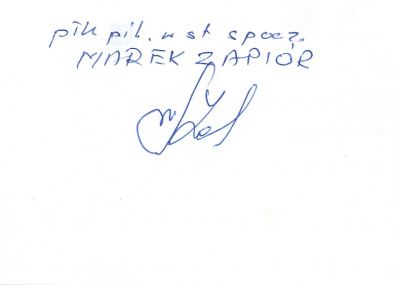 płk pil. w st spocz.
MAREK ZAPIÓR